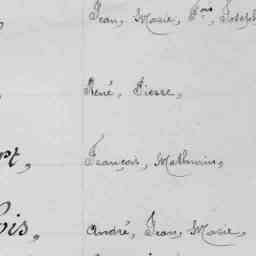 Jean, Marie, Fois, Joseph
René, Pierre,
François, Mathurin,
André, Jean, Marie,